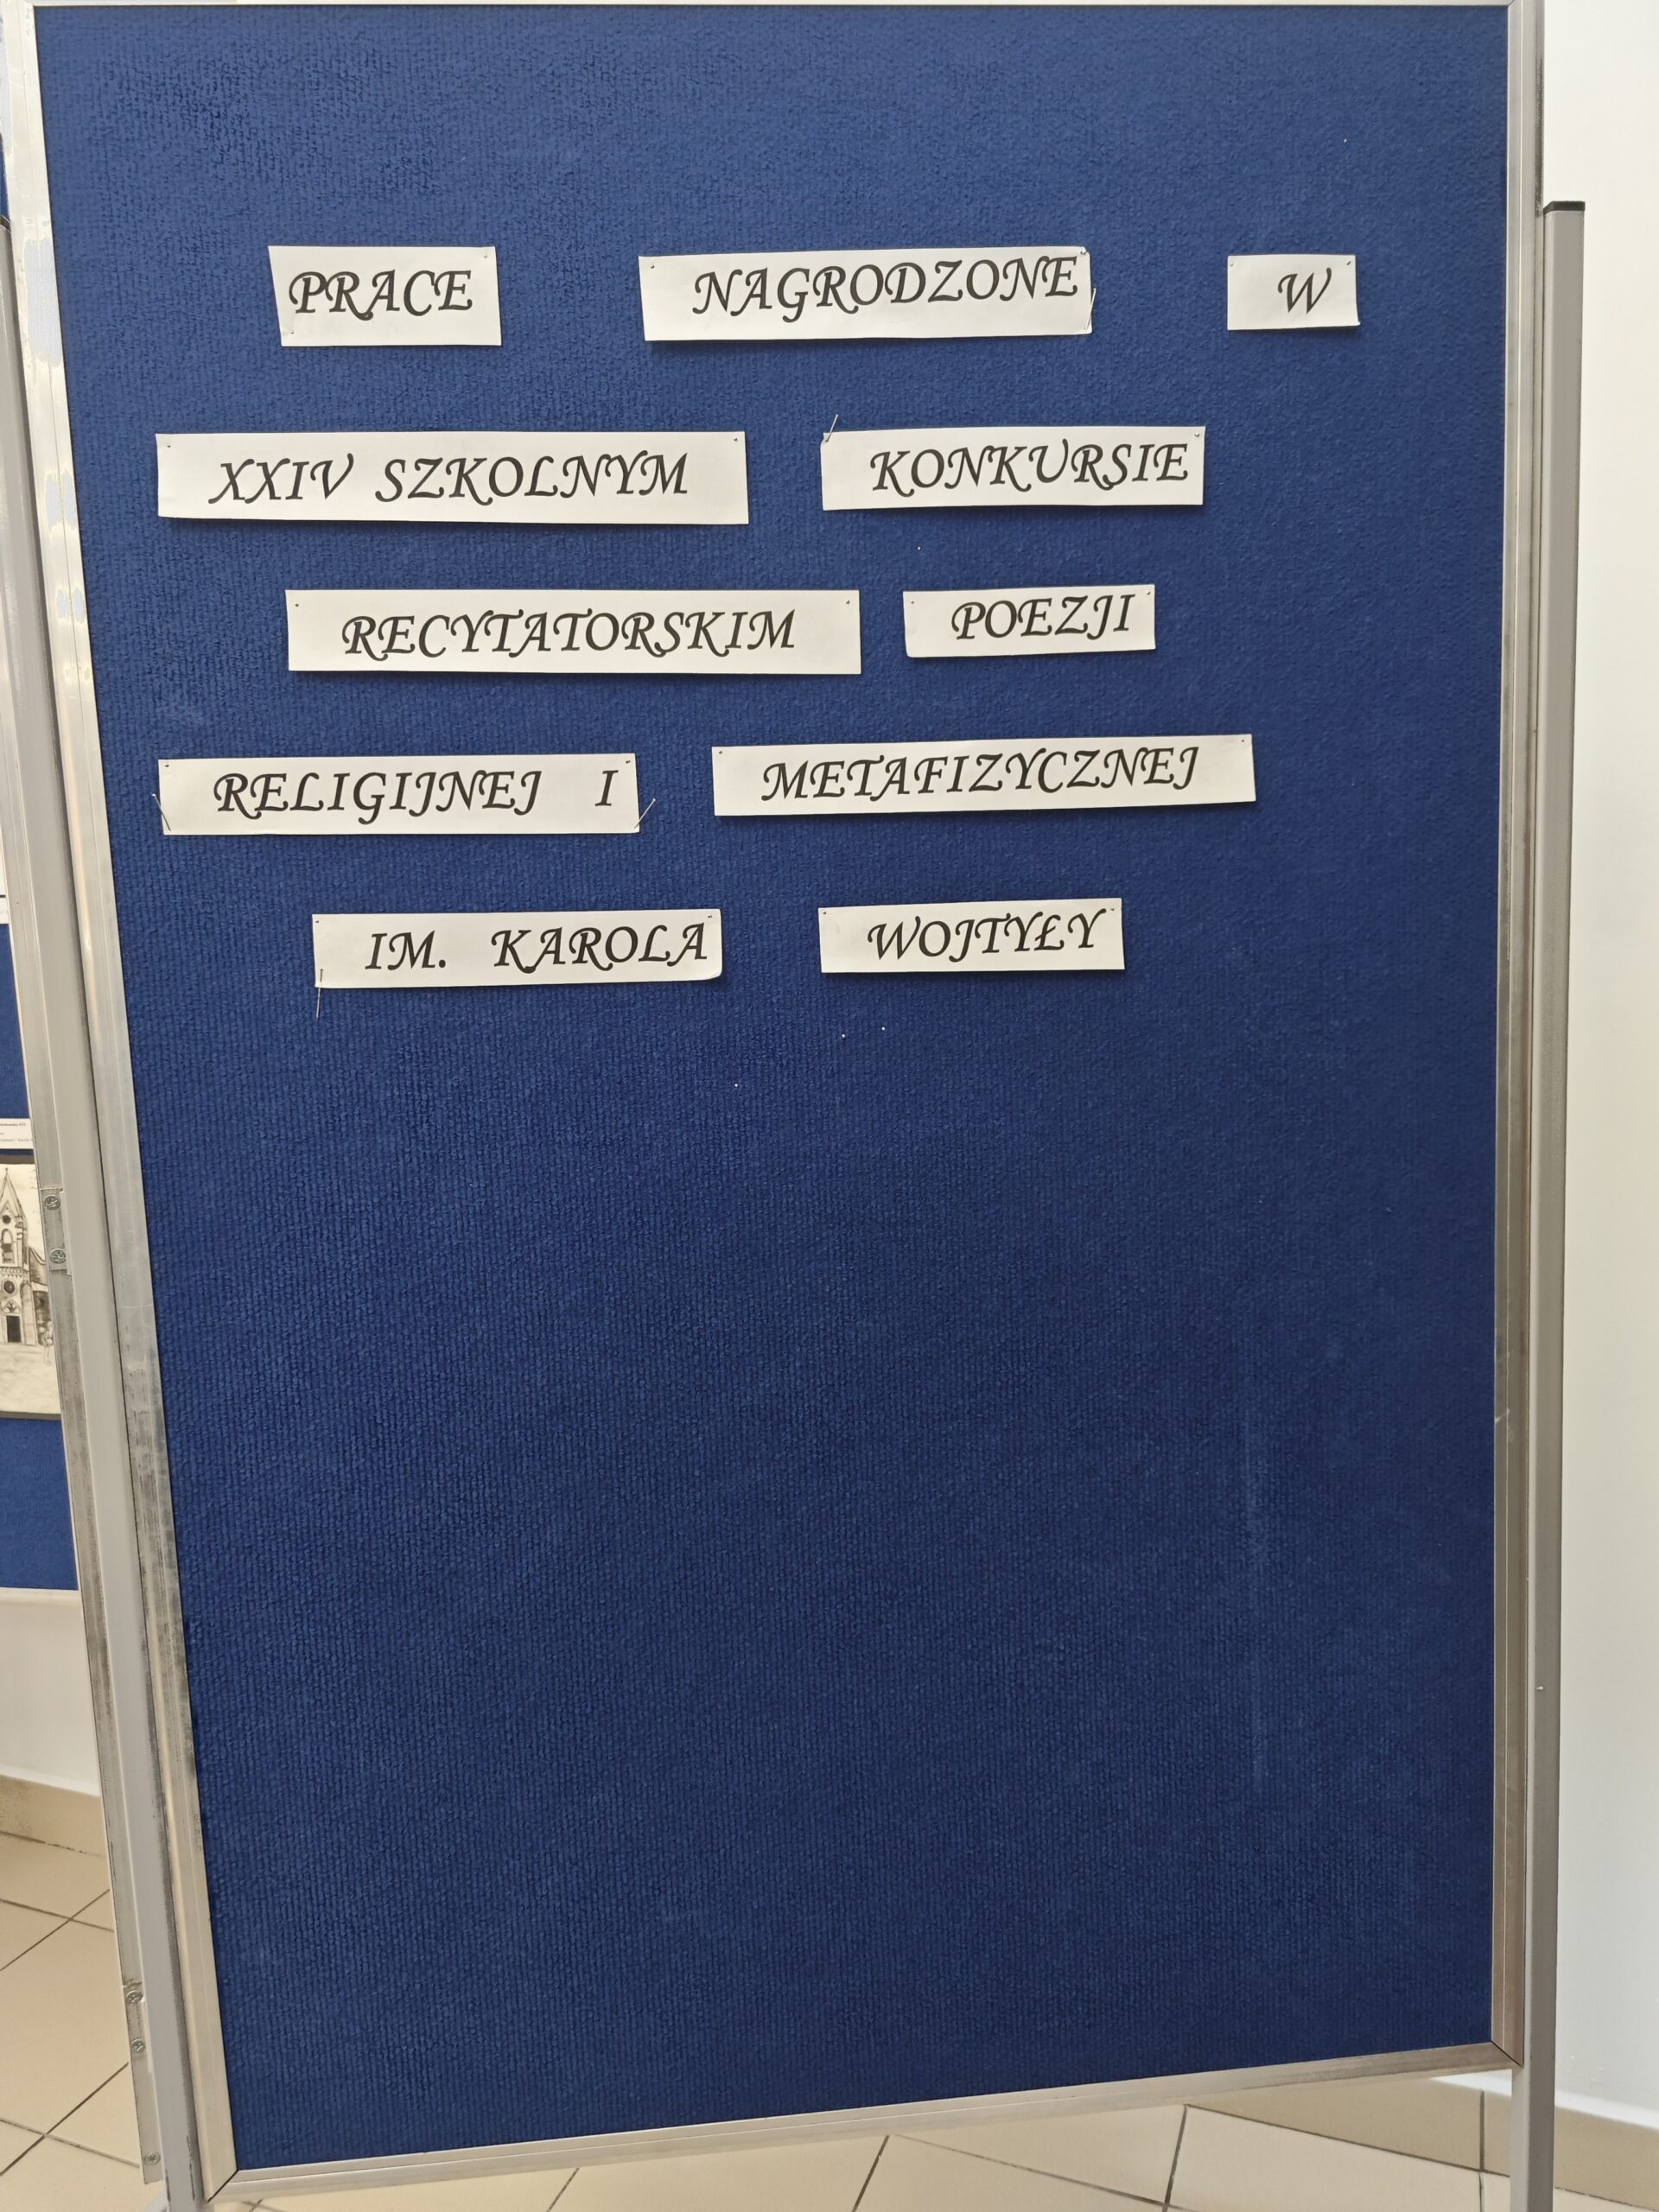 PRACE NAGRODZONE W
XXIV SZKOLNYM KONKURSIE
RECYTATORSKIM POEZJI
RELIGIJNEJ I METAFIZYCZNEJ
IM. KAROLA WOJTYŁY